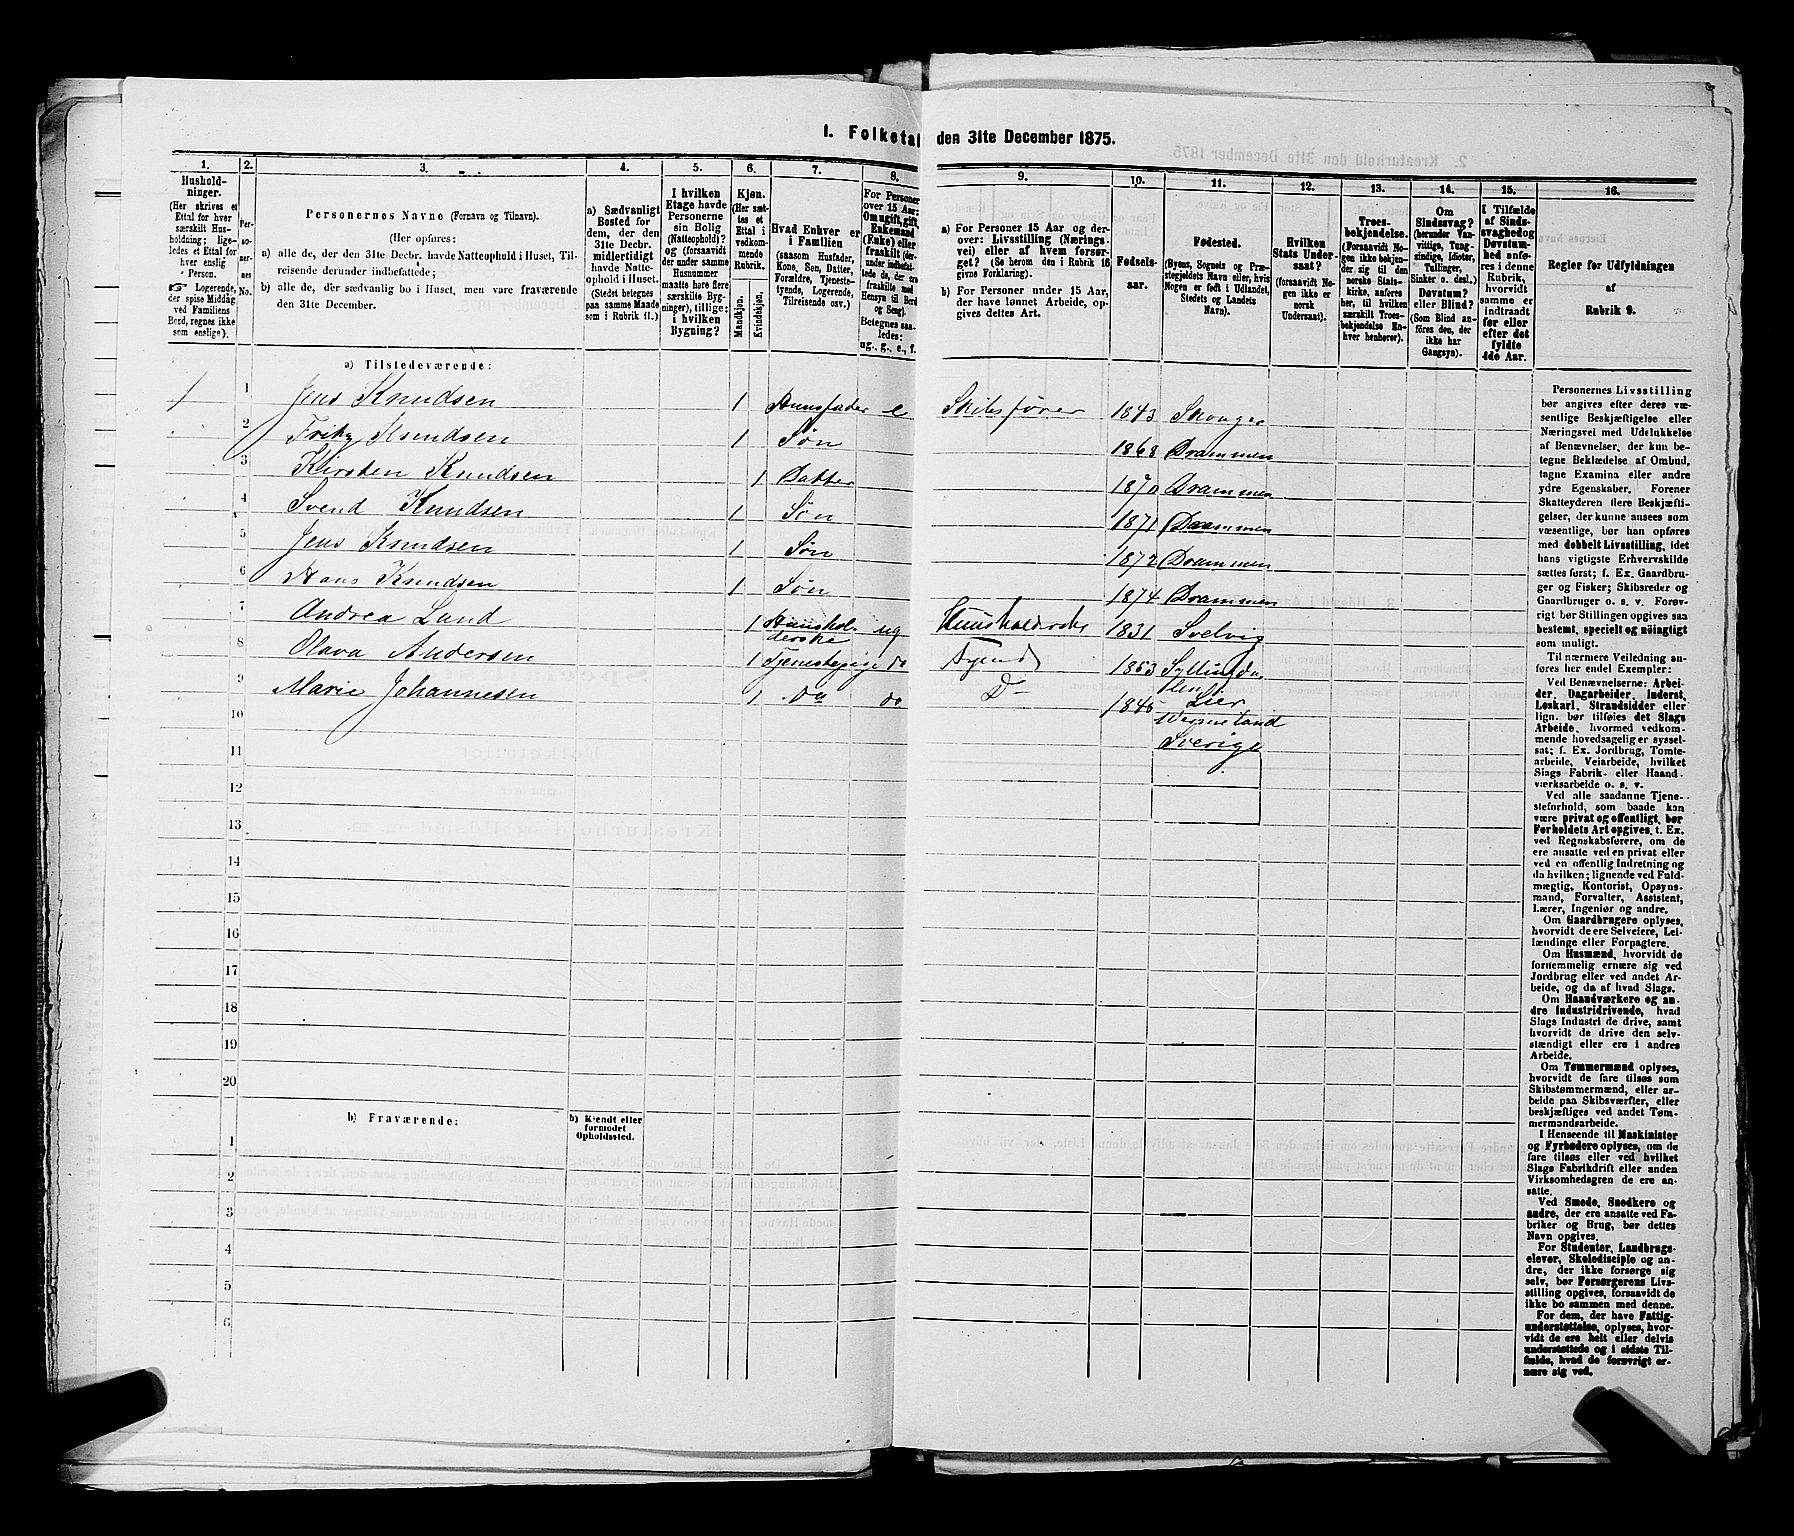 1. Folketal den 31te December 1875.
1. 2. 3. 4. 5. 6. 7. 8. 9. 10. 11. 12. 13. 14. 15. 16.
Hushold-
ninger.
(Her skrives et
Ettal for hver
særskilt Hus-
holdning; lige-
ledes et Ettal for
hver enslig
Person.
☞ Logerende,
der spise Middag
ved Familiens
Bord, regnes ikke
som enslige).
Per-
so-
ner-
nes
No.
Personernes Navne (Fornavn og Tilnavn).
(Her opføres:
a) alle de, der den 31te Decbr. havde Natteophold i Huset, Til-
reisende derunder indbefattede;
b) alle de, der sædvanlig bo i Huset, men vare fraværende
den 31te December.
a) Sædvanligt
Bosted for
dem, der den
31te Decbr.
midlertidigt
havde Natte-
ophold i Huset.
(Stedet betegnes
paa samme Maade
som i Rubrik 11.)
I hvilken
Etage havde
Personerne
sin Bolig
(Natteophold)?
og (forsaavidt
der under samme
Husnummer
maatte høre flere
særskilte Byg-
ninger), tillige:
i hvilken
Bygning?
Kjøn.
(Her sæt-
tes et
Ettal i
vedkom-
mende
Rubrik.
Mandkjøn.
Kvindekjøn.
Hvad Enhver er
i Familien
(saasom Husfader,
Kone, Søn, Datter,
Forældre, Tjeneste-
tyende, Logerende,
Tilreisende osv.)
For Personer
over 15 Aar:
Om ugift, gift,
Enkemand
(Enke) eller
fraskilt
Hensyn til Bord
og Seng).
Betegnes saa-
ledes:
ug., g., e., f.
a) For Personer 15 Aar og der-
over: Livsstilling (Nærings-
vei) eller af hvem forsør-
get? (Se herom den i Rubrik 16
givne Forklaring).
b) For Personer under 15 Aar,
der have lønnet Arbeide, op-
gives dettes Art.
Fødsels-
aar.
Fødested.
(Byens, Sognets og Præ-
stegjeldets Navn eller, hvis
Nogen er født i Udlandet,
Stedets og Landets
Navn).
Hvilken
Stats Under-
saat?
(forsaavidt No-
gen ikke er
norsk
Undersaat).
Troes-
bekjendelse.
(Forsaavidt No-
gen ikke bekjen-
der sig til den
norske Stats-
kirke, anføres
her, til hvilken
særskilt Troes-
bekjendelse En-
hver henhører).
Om
Sindssvag?
(herunder Van-
vittige, Tung-
sindige, Idioter,
Tullinger,
Sinker o. desl.).
Døvstum?
eller Blind?
(Som Blind an-
føres den, der
ikke har
Gangsyn).
I Tilfælde
af Sinds-
svaghed og
Døvstum-
hed anfø-
res i denne
Rubrik,
hvorvidt
samme er
indtraadt
før eller
efter det
fyldte
4de Aar.
Regler for Udfyldningen
af
Rubrik 9.
a) Tilstedeværende:
1 1 Jens Knudsen 1 Huusfader e Skibsfører 1843 Skouger
2 Fritz Knudsen 1 Søn 1868 Drammen
3 Kirsten Knudsen 1 Datter 1870 Drammen
4 Svend Knudsen 1 Søn 1871 Drammen
5 Jens Knudsen 1 Søn 1872 Drammen
6 Hans Knudsen 1 Søn 1874 Drammen
7 Andrea Lund 1 Huushol-
derske ug Huusholderske 1831 Svelvig
8 Olava Andersen 1 Tjenestepige do Tyende 1853
Lier
9 Marie Johannesen 1 Do do D- 1845 Wermeland
Sverige
10
11
12
13
14
15
16
17
18
19
20
b) Fraværende:
b) Kjendt eller
formodet
Opholdssted.
1
2
3
4
5
6
Personernes Livsstilling
bør angives efter deres væ-
sentlige Beskjæftigelse eller
Næringsvei med Udelukkelse
af Benævnelser, der kun be-
tegne Beklædelse af Ombud,
tagne Examina eller andre
ydre Egenskaber. Forener
Skatteyderen flere Beskjæfti-
gelser, der kunne ansees som
væsentlige, bør han opføres
med dobbelt Livsstilling, idet
hans vigtigste Erhvervskilde
sættes først; f. Ex. Gaardbru-
ger og Fisker; Skibsreder og
Gaardbruger o. s. v. Forøv-
rigt bør Stillingen opgives saa
bestemt, specielt og nöiagtigt
som muligt.
Til nærmere Veiledning an-
føres her endel Exempler:
Ved Benævnelserne: Arbei-
der, Dagarbeider, Inderst,
Løskarl, Strandsidder eller
lign. bør tilføies det Slags
Arbeide, hvormed vedkom-
mende hovedsagelig er syssel-
sat; f. Ex. Jordbrug, Tomte-
arbeide, Veiarbeide, hvilket
Slags Fabrik- eller Haand-
værksarbeide o. s. v.
Ved alle saadanne Tjene-
steforhold, som baade kan
være privat og offentligt, bør
Forholdets Art opgives, t. Ex.
ved Regnskabsførere, om de
ere ansatte ved en privat eller
ved en offentlig Indretning og
da hvilken; lignende ved Fuld-
mægtig, Kontorist, Opsyns-
mand, Forvalter, Assistent,
Lærer, Ingeniør og andre.
Om Gaardbrugere oplyses,
hvorvidt de ere Selveiere, Lei-
lændinge eller Forpagtere.
Om Husmænd, hvorvidt de
fornemmelig ernære sig ved
Jordbrug eller ved andet Ar-
beide, og da af hvad Slags.
Om Haandværkere og an-
dre Industridrivende, hvad
Slags Industri de drive, samt
hvorvidt de drive den selv-
stændigt eller ere i andres
Arbeide.
Om Tømmermænd oplyses,
hvorvidt de fare tilsøs som
Skibstømmermænd, eller ar-
beide paa Skibsværfter, eller
beskjæftiges ved andet Tøm-
mermandsarbeide.
I Henseende til Maskinister
og Fyrbødere oplyses, om de
fare tilsøs eller ved hvilket
Slags Fabrikdrift eller anden
Virksomhedsgren de ere an-
satte.
Ved Smede, Snedkere og
andre, der ere ansatte ved Fa-
briker og Brug, bør dettes
Navn opgives.
For Studenter, Landbrugs-
elever, Skoledisciple og an-
dre, der ikke forsørge sig
selv, bør Forsørgerens Livs-
stilling opgives, forsaavidt de
ikke bo sammen med denne.
For dem, der have Fattig-
understøttelse, oplyses, hvor-
vidt de ere helt eller delvis
understøttede og i sidste Til-
fælde, hvad de forøvrigt er-
nære sig ved.